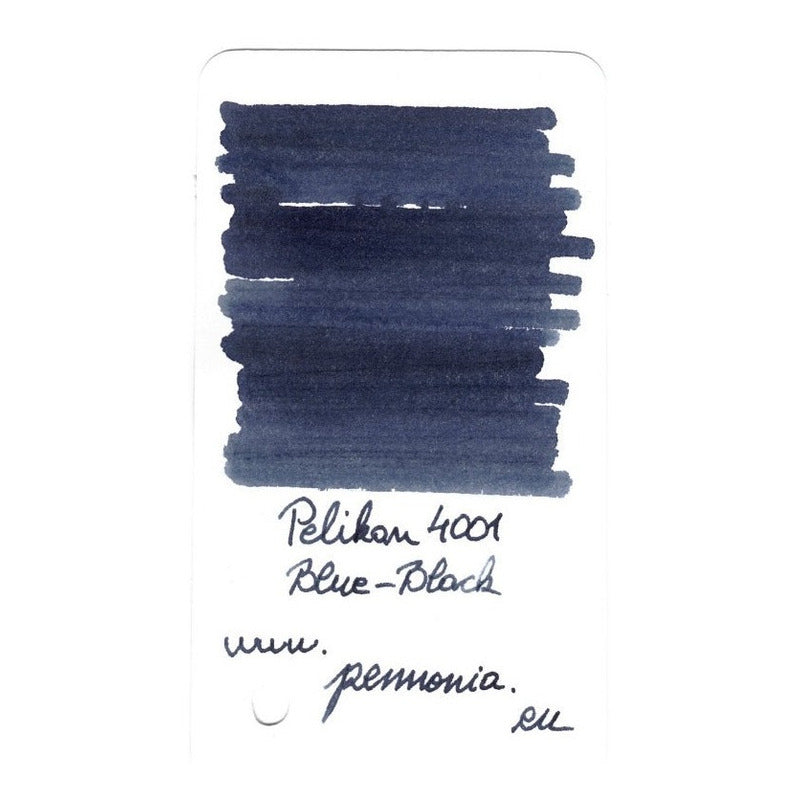 Pelikan 4001
Blue-Black
www.
pennonia.
eu